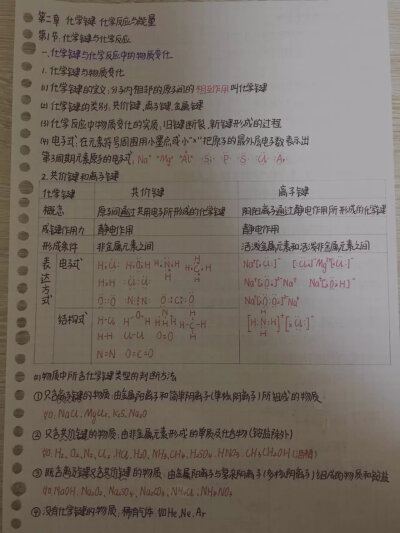 第二章 化学键 化学反应与能量
第1节 化学键与化学反应
一、化学键与化学反应中的物质变化
1. 化学键与物质变化
(1) 化学键的定义:分子内相邻的原子间的相互作用叫化学键
(2) 化学键的类别:共价键、离子键、金属键
(3) 化学反应中物质变化的实质:旧键断裂、新键形成的过程
(4) 电子式:在元素符号周围用小黑点或小"×"把原子的最外层电子数表示出
第3周期元素原子的电子式: Na· ·Mg· ·Al· ·Si· ·P· ·S· ·Cl· Ar
2. 共价键和离子键
化学键 共价键 离子键
概念 原子间通过共用电子所形成的化学键 阴阳离子通过静电作用所形成的化学键
成键作用力 静电作用 静电作用
形成条件 非金属元素之间 活泼金属元素和活泼非金属元素之间
表达方式
电子式 H:Cl: H:O:H H:N:H H:C:H Na⁺[:Cl:]⁻ [:Cl:]⁻Mg²⁺[:Cl:]⁻
H:H :Cl:Cl: Na⁺[:S:]²⁻Na⁺ Na⁺[:O:H]⁻
O::O N⋮⋮N O::C::O Na⁺[:O:O:]²⁻Na⁺
结构式 H-Cl [H:N:H]⁺[:Cl:]⁻
H-H Cl-Cl O=O
N≡N O=C=O
(1) 物质中所含化学键类型的判断方法
① 只含离子键的物质:由金属阳离子和简单阴离子(单核阴离子)所组成的物质
如: NaCl、MgCl₂、K₂S、Na₂O
② 只含共价键的物质:由非金属元素形成的单质及化合物(铵盐除外)
如: H₂、O₂、N₂、Cl₂、HCl、H₂O、NH₃、CH₄、H₂SO₄、HNO₃、CH₃CH₂OH(酒精)
③ 既含离子键又含共价键的物质:由金属阳离子与复杂阴离子(多核阴离子)组成的物质和铵盐
如: NaOH、Na₂O₂、Na₂SO₄、Na₂CO₃、NH₄Cl、NH₄NO₃
④ 没有化学键的物质:稀有气体 如 He、Ne、Ar